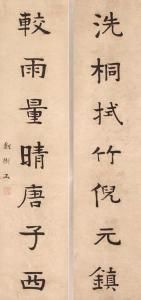 洗桐拭竹倪元鎮
較雨量晴唐子西